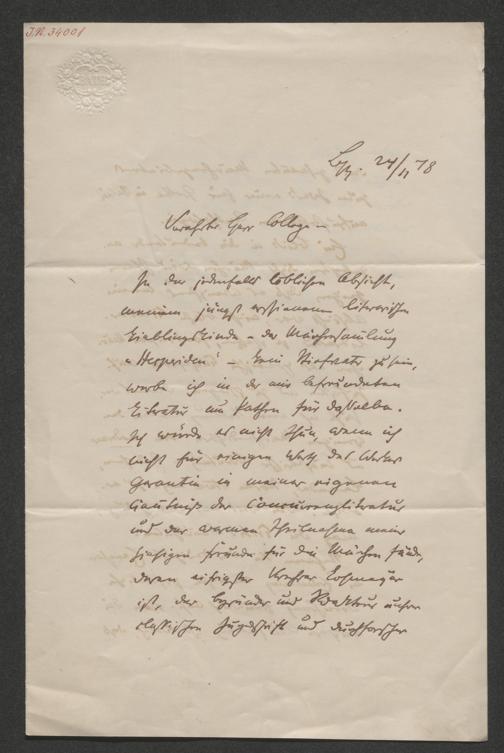 I.N. 34001
BATH
Lpzg. 24/11 78
Verehrter Herr College –
In der jedenfalls löblichen Absicht,
meinem jüngst erschienenen literarischen
Lieblingskinde – der Märchensammlung
„Hesperiden“ – kein Stiefvater zu sein,
werbe ich in der mir befreundeten
Literatur um Pathen für dasselbe.
Ich würde es nicht thun, wenn ich
nicht für einigen Werth des Werkes
Garantie in meiner eigenen
Kenntniß der Concurrenzliteratur
und der warmen Theilnahme meiner
hiesigen Freunde für die Märchen fände,
deren eifrigster Verehrer Lohmeyer
ist, der Begründer und Redakteur unsrer
classischen Jugendschrift und